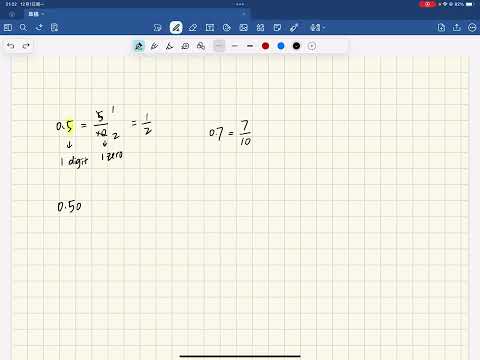 21:02 12月1日周一
82%
草稿
0.5 = 5/10 = 1/2
1
2
1 digit
1 zero
0.7 = 7/10
0.50